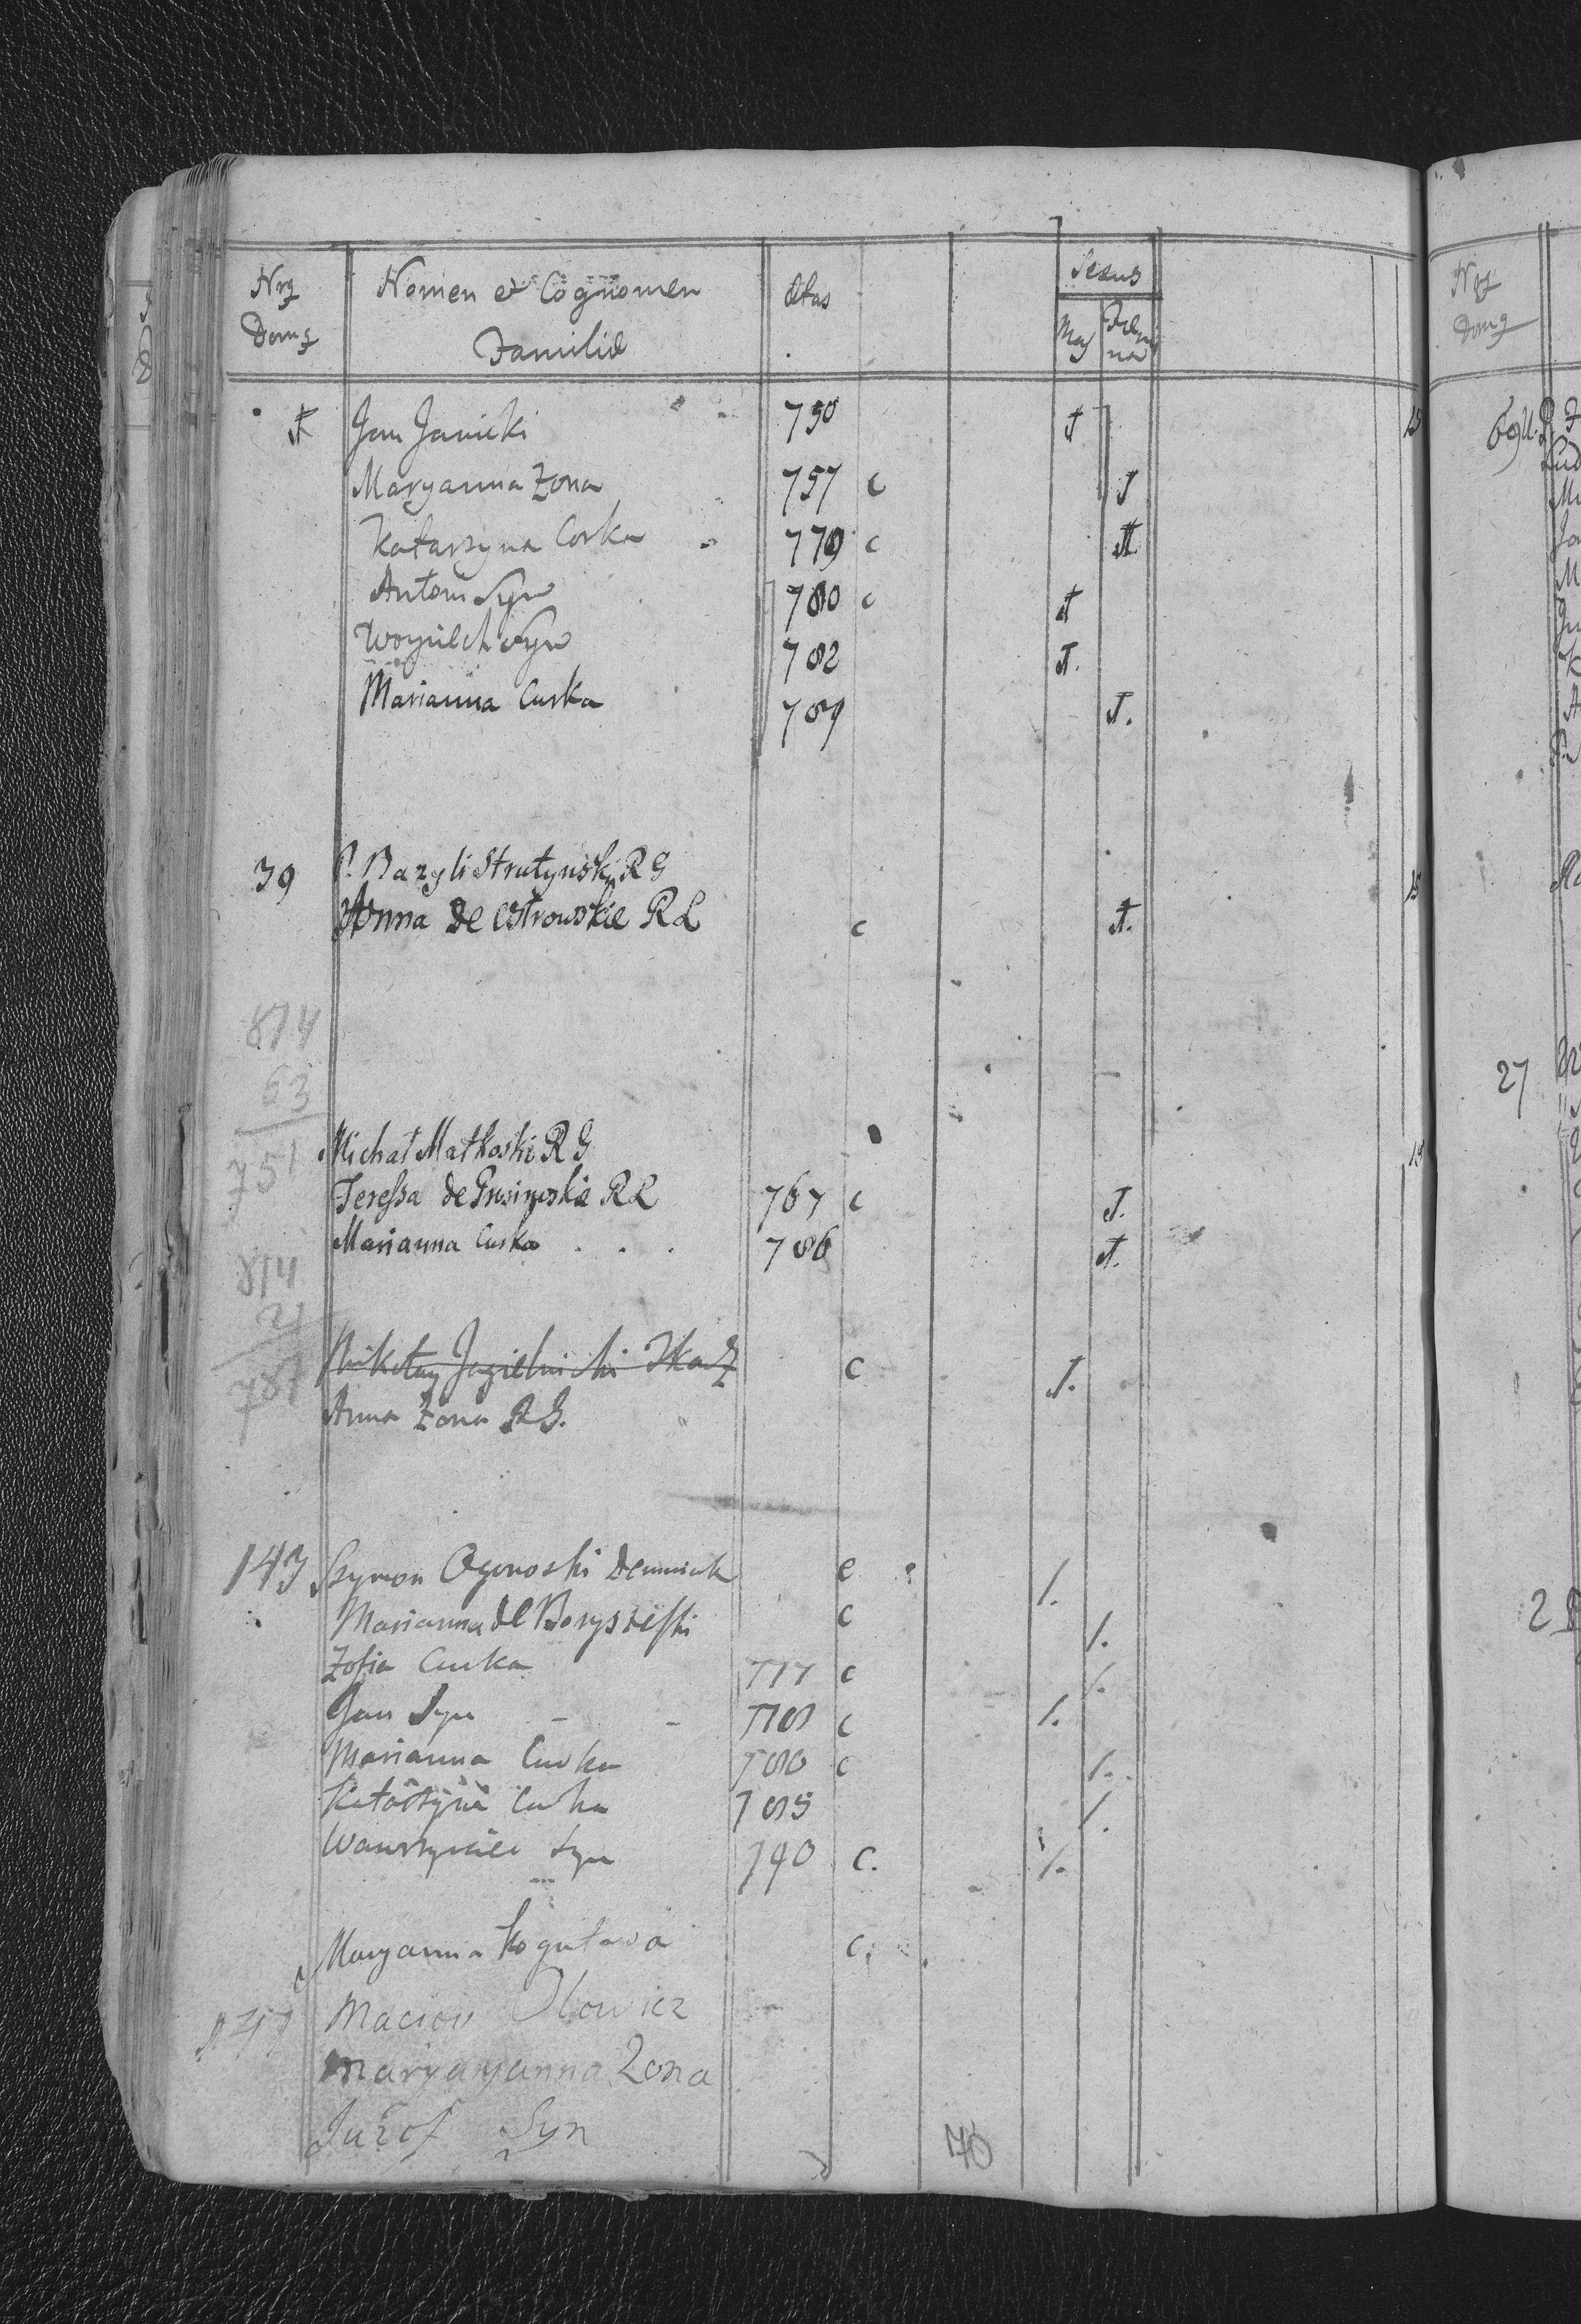 Nrꝯ Domꝯ Nomen et Cognomen Familiæ Ætas Sexus Mas Fæmina
Jan Janicki 750 1
Maryanna Zona 757 c 1
Katarzyna Corka 779 c 1
Antoni Syn 780 c 1
Woyciech Syn 782 1.
Marianna Curka 789 1.
39 P. Bazyli Strutyński R G
Anna de Ostrowskie R L c 1.
814
63
751
Michał Matkoski R G
Teressa de R L 767 c 1.
Marianna Curka . . . 786 1.
814
21
787
Mikołay Jagielnicki c 1.
Anna Zona R G.
143 Szymon Ogonoski c 1.
Marianna de c 1.
Zofia Curka 777 c 1.
Jan Syn - - 778 c 1.
Marianna Curka 780 c 1.
Katarzyna Curka 785 1.
Wawrzyniec Syn 790 c. 1.
Maryanna Kogutowa c.
Maciey
Maryaryanna Zona
Juzef Syn
70
69
27